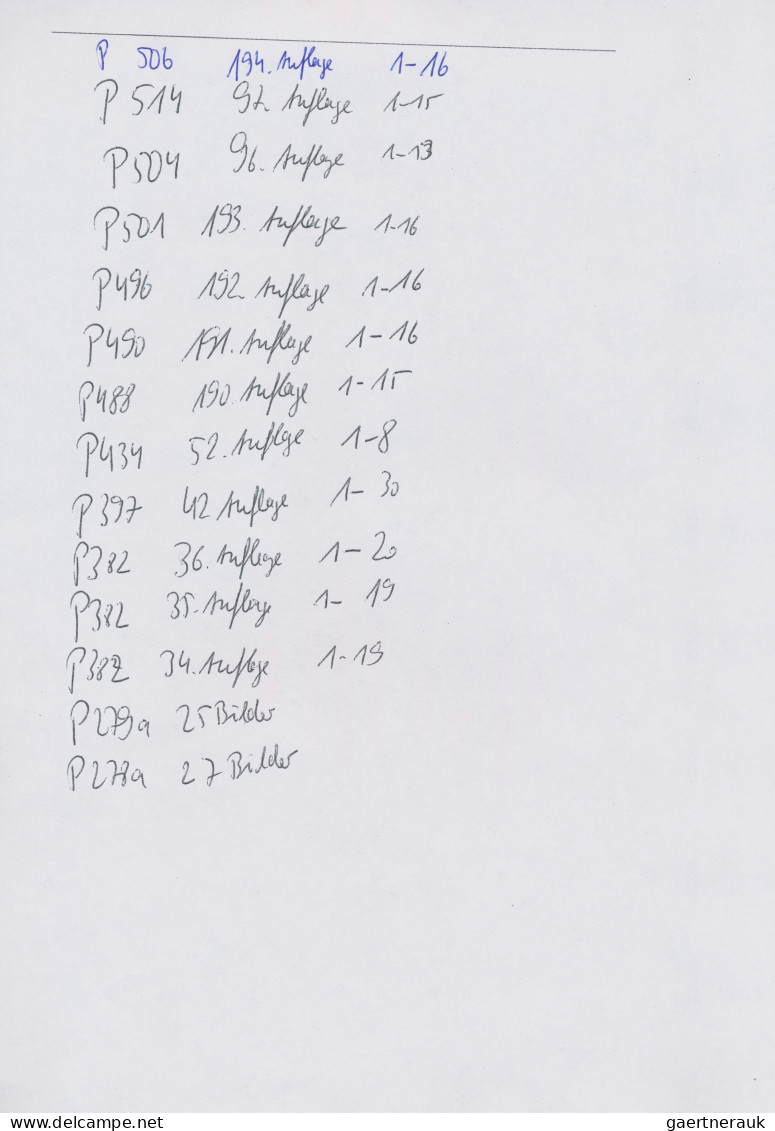 P 506 194. Auflage 1-16
P 514 97. Auflage 1-15
P504 96. Auflage 1-13
P501 193. Auflage 1-16
P496 192. Auflage 1-16
P490 191. Auflage 1-16
P488 190. Auflage 1-15
P434 52. Auflage 1-8
P397 42 Auflage 1-30
P382 36. Auflage 1-20
P382 35. Auflage 1-19
P382 34. Auflage 1-19
P279a 25 Bilder
P278a 27 Bilder
delcampe.net
gaertnerauk